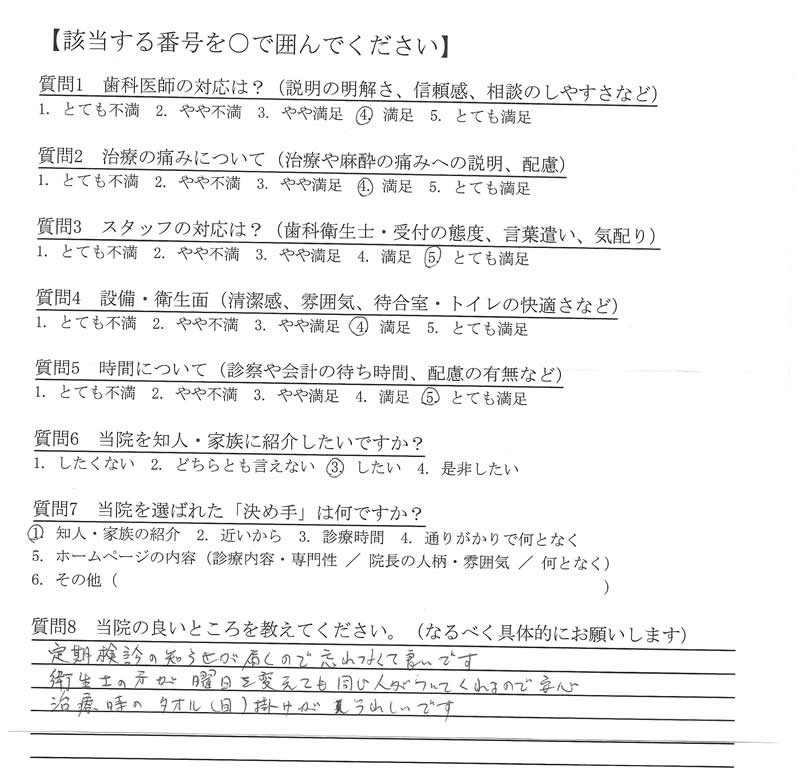 【該当する番号を〇で囲んでください】
質問1　歯科医師の対応は？（説明の明解さ、信頼感、相談のしやすさなど）
1. とても不満　2. やや不満　3. やや満足　4. 満足　5. とても満足
質問2　治療の痛みについて（治療や麻酔の痛みへの説明、配慮）
1. とても不満　2. やや不満　3. やや満足　4. 満足　5. とても満足
質問3　スタッフの対応は？（歯科衛生士・受付の態度、言葉遣い、気配り）
1. とても不満　2. やや不満　3. やや満足　4. 満足　5. とても満足
質問4　設備・衛生面（清潔感、雰囲気、待合室・トイレの快適さなど）
1. とても不満　2. やや不満　3. やや満足　4. 満足　5. とても満足
質問5　時間について（診察や会計の待ち時間、配慮の有無など）
1. とても不満　2. やや不満　3. やや満足　4. 満足　5. とても満足
質問6　当院を知人・家族に紹介したいですか？
1. したくない　2. どちらとも言えない　3. したい　4. 是非したい
質問7　当院を選ばれた「決め手」は何ですか？
1. 知人・家族の紹介　2. 近いから　3. 診療時間　4. 通りがかりで何となく
5. ホームページの内容（診療内容・専門性 ／ 院長の人柄・雰囲気 ／ 何となく）
6. その他（　　　　　　　　　　）
質問8　当院の良いところを教えてください。（なるべく具体的にお願いします）
定期検診の知らせが届くので忘れなくて良いです
衛生士の方が曜日を変えても同じ人がついてくれるので安心
治療時のタオル（目）掛けがうれしいです